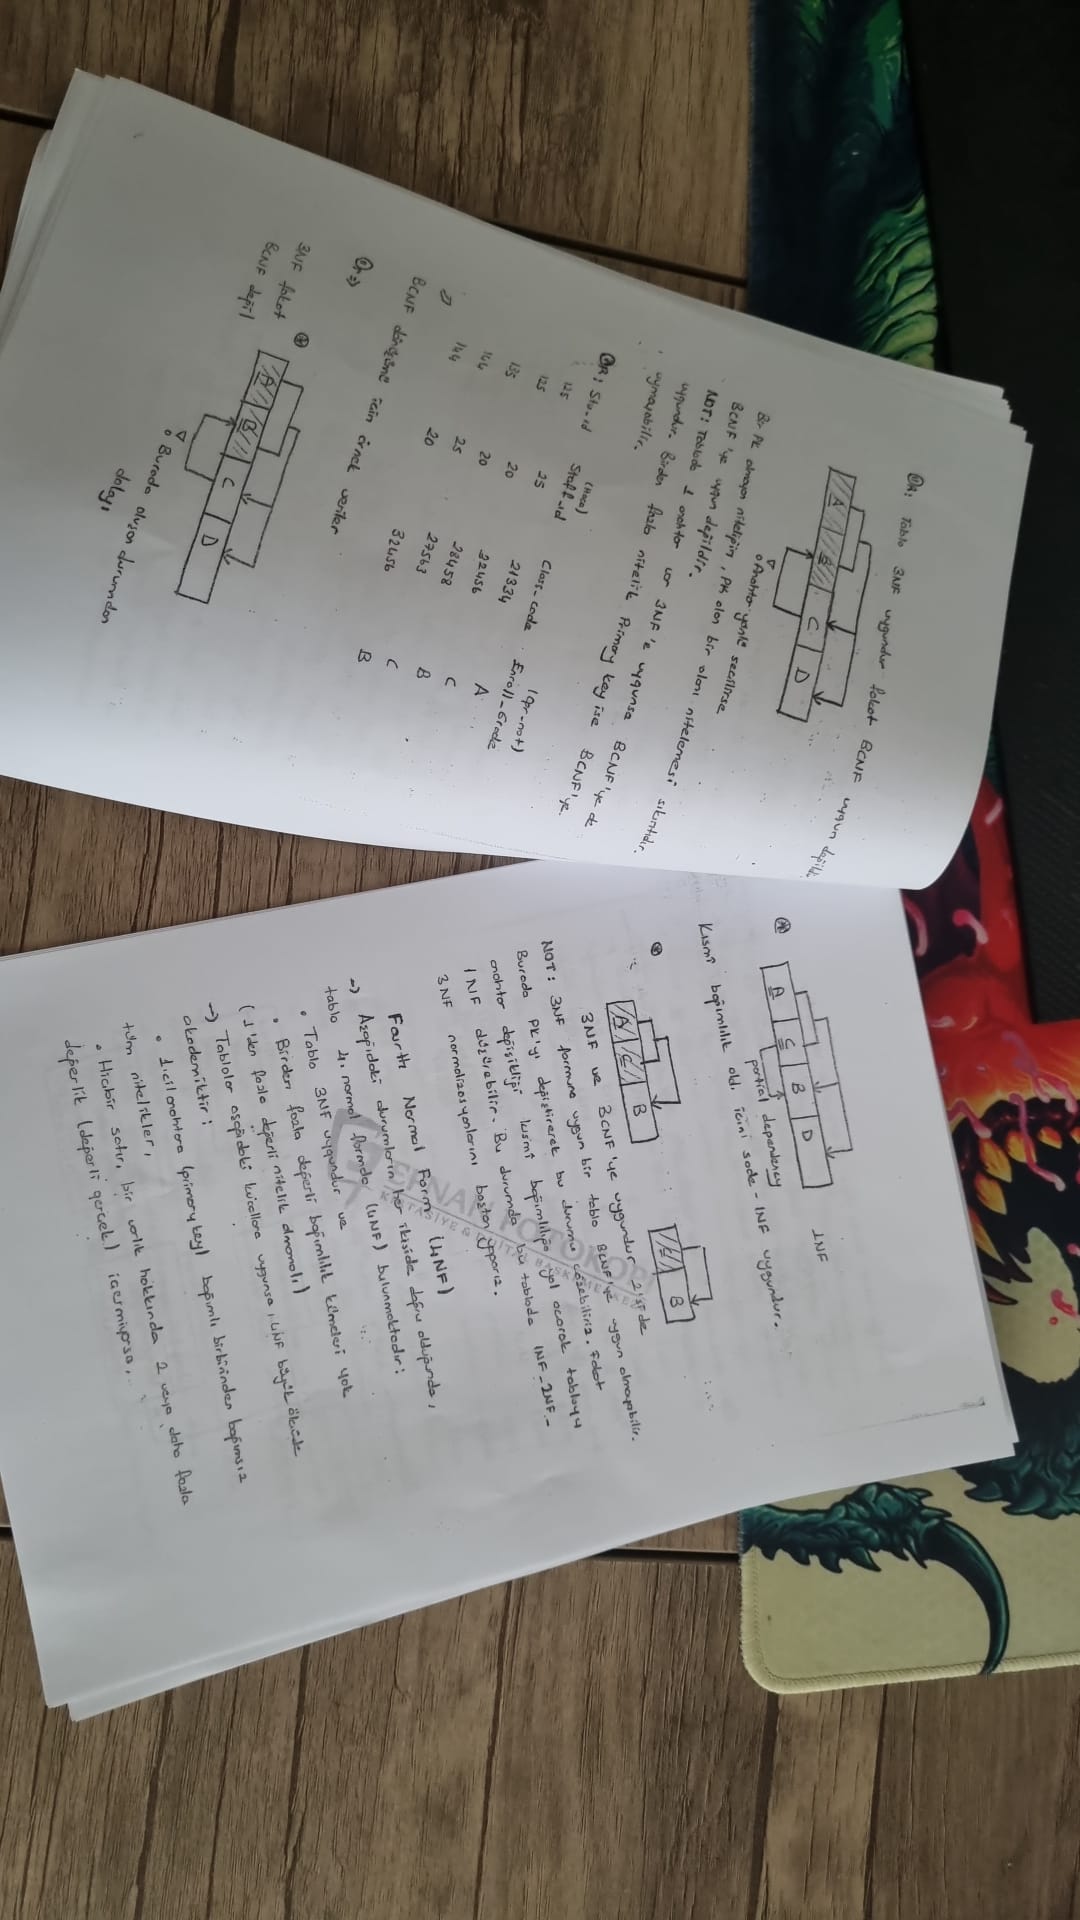 Ör: Tablo 3NF uygundur fakat BCNF uygun değildir
A B C D
o Anahtar yanlış seçilirse
Bir PK olmayan niteliğin, PK olan bir alanı nitelemesi sıkıntıdır.
BCNF'ye uygun değildir.
NOT: Tabloda 1 anahtar var 3NF'e uygunsa BCNF'ye de
uygundur. Birden fazla nitelik Primary key ise BCNF'ye
uymayabilir.
(Hoca) (öğr-not)
Ör: Stu-id Staff-id Class-code Enroll-Grade
125 25 21334 A
125 20 32456 C
135 20 28458 B
144 25 27563 C
144 20 32456 B
BCNF dönüşümü için örnek veriler
Ör =>
3NF fakat
BCNF değil
A B C D
o Burada oluşan durumdan
dolayı
1NF
A C B D
partial dependency
Kısmi bağımlılık old. için sade - 1NF uygundur.
A C B
A B
3NF ve BCNF'ye uygundur 2'side
NOT: 3NF formuna uygun bir tablo BCNF'ye uygun olmayabilir.
Burada PK'yi değiştirerek bu durumu çözebiliriz. Fakat
anahtar değişikliği kısmi bağımlılığa yol açarak tabloyu
1NF düşürebilir. Bu durumda bu tabloda 1NF-2NF-
3NF normalizasyonlarını baştan yaparız.
Fourth Normal Form (4NF)
-> Aşağıdaki durumların her ikiside doğru olduğunda,
tablo 4. normal formda (4NF) bulunmaktadır:
• Tablo 3NF uygundur ve
• Birden fazla değerli bağımlılık kümeleri yok
(1'den fazla değerli nitelik olmamalı)
-> Tablolar aşağıdaki kurallara uygunsa, 4NF büyük ölçüde
akademiktir:
• 1.cil anahtara (primary key) bağımlı birbirinden bağımsız
tüm nitelikler,
• Hiçbir satır, bir varlık hakkında 2 veya daha fazla
değerlik (değerli gerçek) içermiyorsa.
ERHAN FOTOKOPİ
KIRTASİYE & DİJİTAL BASKI MERKEZİ